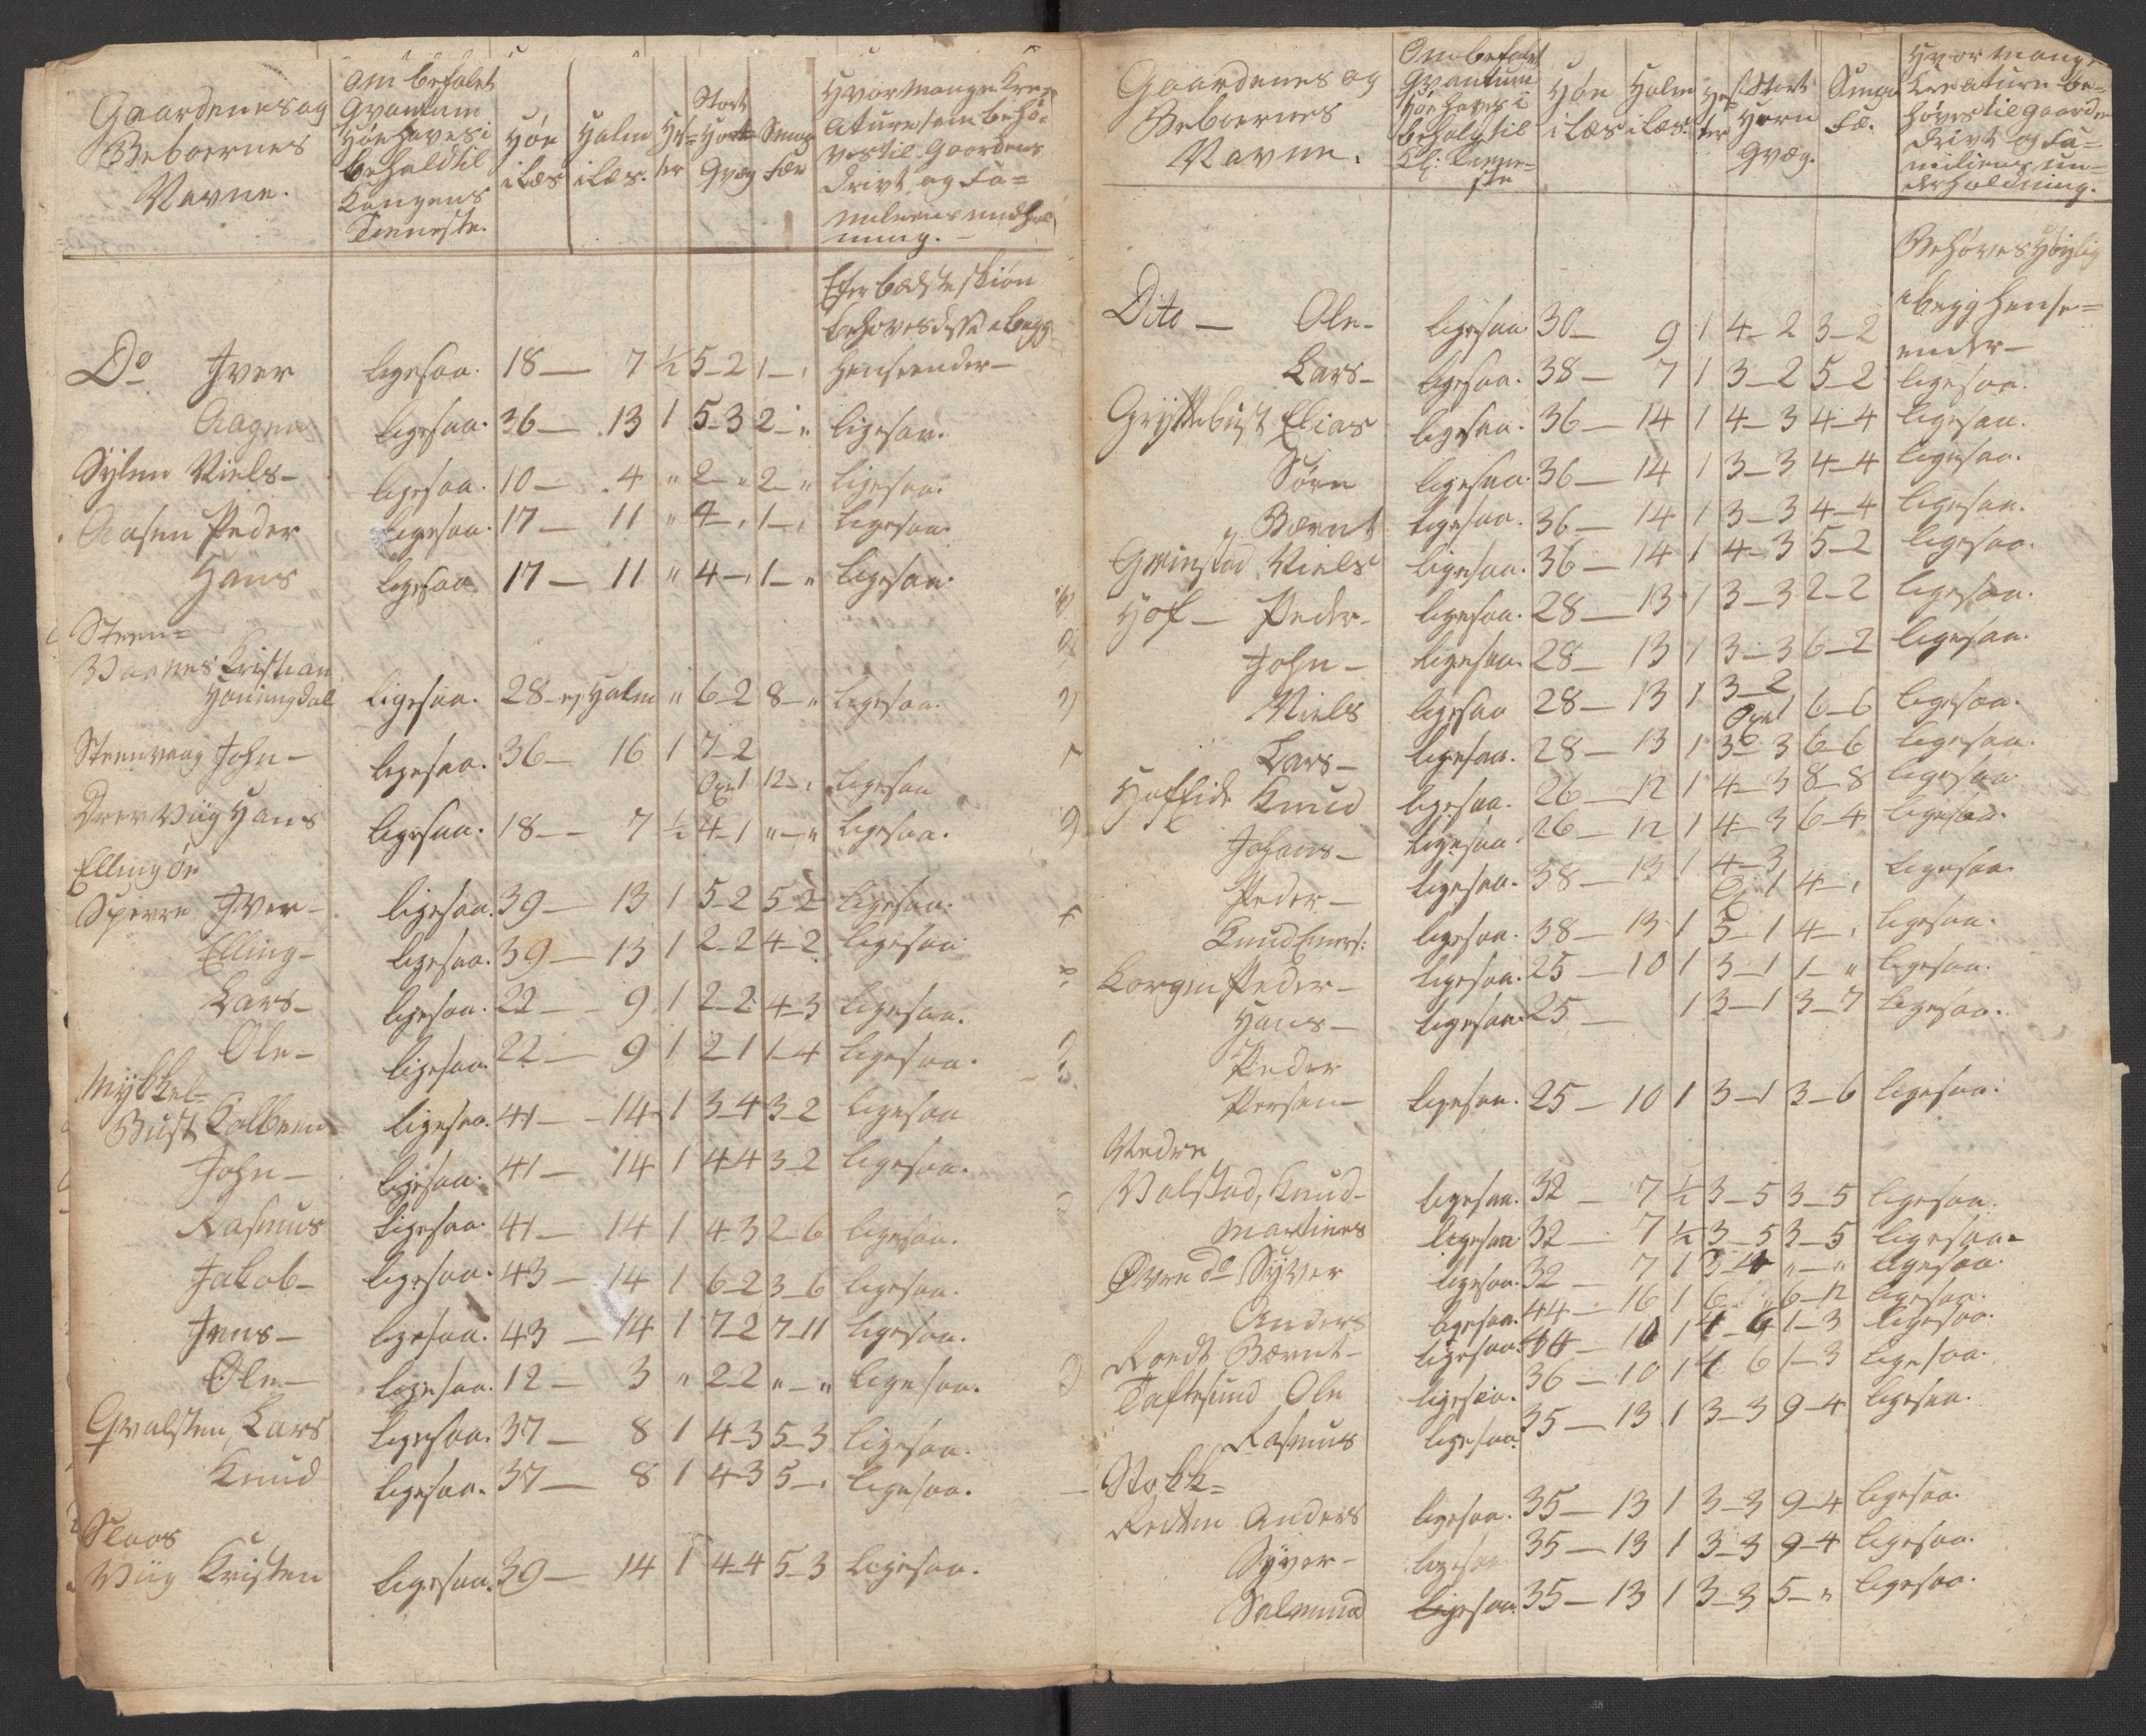 Gaardenes og
Beboernes
Navne.
Om befalet
Qvantum
Høe haves i
behold til
Kongens
Tieneste.
Høe
i Læs
Halm
i Læs.
He=
ster
Stort
Horn
Qvæg
Smaa
Fæe
Hvor mange Kre=
ature som behø=
ves til Gaardens
Drivt og Fa=
miliens undhol
ning.
Efter bædste skiøn
behoves disse i begge
Do Iver ligesaa. 18 — 7 ½ 5-2 1-, henseender —
Aagen ligesaa. 36 — 13 1 5-3 2-„ ligesaa.
Sylen Niels — ligesaa. 10 — 4 „ 2-„ 2-„ ligesaa.
Aasen Peder ligesaa. 17 — 11 „ 4-, 1-, ligesaa.
Hans ligesaa. 17 — 11 „ 4-, 1-„ ligesaa.
Steen=
Vaanes Kristian
Honingdal ligesaa. 28 - ej Halm „ 6-2 8-„ ligesaa.
Steenvaag John — ligesaa. 36 — 16 1 7-2
Oxe 1 12-, ligesaa
Drevviig Hans ligesaa. 18 — 7 ½ 4-1 „-„ ligesaa.
Ellingøe
Sperre Iver — ligesaa. 39 — 13 1 5-2 5-2 ligesaa.
Elling — ligesaa. 39 — 13 1 2-2 4-2 ligesaa.
Lars — ligesaa. 22 — 9 1 2-2 4-3 ligesaa.
Ole — ligesaa. 22 — 9 1 2-1 1-4 ligesaa.
Mykkel=
Bust Kolben ligesaa. 41 — 14 1 3-4 3-2 ligesaa
John — ligesaa. 41 — 14 1 4-4 3-2 ligesaa.
Rasmus ligesaa. 41 — 14 1 4-3 2-6 ligesaa.
Jakob — ligesaa. 43 — 14 1 6-2 3-6 ligesaa.
Jens — ligesaa. 43 — 14 1 7-2 7-11 ligesaa.
Ole — ligesaa. 12 — 3 „ 2-2 „-„ ligesaa.
Qvalsten, Lars ligesaa. 37 — 8 1 4-3 5-3 ligesaa.
Knud ligesaa. 37 — 8 1 4-3 5-, ligesaa.
Slaas
Viig Kristen ligesaa. 39 — 14 1 4-4 5-3 ligesaa.
Gaardenes og
Beboernes
Navne.
Om befalet
Qvantum
Høe haves i
behold til
Kl: Tiene=
ste
Høe
i Læs
Halm
i Læs.
He=
ster
Stort
Horn
Qvæg.
Smaa
Fæ.
Hvor mange
Kreature be=
høves til Gaarden
Drivt og Fa=
miliens un=
derholdning.
Behøves Høylig
i begge hense=
Dito — Ole — ligesaa 30 — 9 1 4-2 3-2 ender —
Lars — ligesaa. 38 — 7 1 3-2 5-2 ligesaa.
Gryttebust Elias ligesaa. 36 — 14 1 4-3 4-4 ligesaa.
Søren ligesaa. 36 — 14 1 3-3 4-4 ligesaa.
Bærnt ligesaa. 36 — 14 1 3-3 4-4 ligesaa.
Grinstad Niels ligesaa. 36 — 14 1 4-3 5-2 ligesaa.
Hof — Peder — ligesaa. 28 — 13 1 3-3 2-2 ligesaa.
John — ligesaa. 28 — 13 1 3-3 6-2 ligesaa.
Niels ligesaa 28 — 13 1 3-2
Oxe 1 6-6 ligesaa.
Lars — ligesaa. 28 — 13 1 3-3 6-6 ligesaa.
Hofside Knud ligesaa. 26 — 12 1 4-3 8-8 ligesaa.
Johans — ligesaa. 26 — 12 1 4-3 6-4 ligesaa.
Peder — ligesaa. 38 — 13 1 4-3
1 4-, ligesaa.
Knud Einers: ligesaa. 38 — 13 1 5-1 4-, ligesaa.
Korgen Peder — ligesaa. 25 — 10 1 3-1 1-„ ligesaa.
Hans — ligesaa 25 — 1 3-1 3-7 ligesaa.
Peder
Persen — ligesaa. 25 — 10 1 3-1 3-6 ligesaa.
Nedre
Valstad, Knud — ligesaa. 32 — 7 ½ 3-5 3-5 ligesaa.
Martines ligesaa 32 — 7 ½ 3-5 3-5 ligesaa.
Øvre do Syver ligesaa. 32 — 7 1 3-4 „-„ ligesaa.
Anders ligesaa. 44 — 16 1 6 „ 6-12 ligesaa.
Roedt Bærnt — ligesaa. 44 — 10 1 4-6 1-3 ligesaa.
Taftesund Ole ligesaa. 36 — 10 1 4 6 1-3 ligesaa.
Rasmus ligesaa. 35 — 13 1 3-3 9-4 ligesaa.
Stokk=
Redten Anders ligesaa. 35 — 13 1 3-3 9-4 ligesaa.
Syver — ligesaa 35 — 13 1 3-3 9-4 ligesaa.
Salmund ligesaa 35 — 13 1 3-3 5-„ ligesaa.